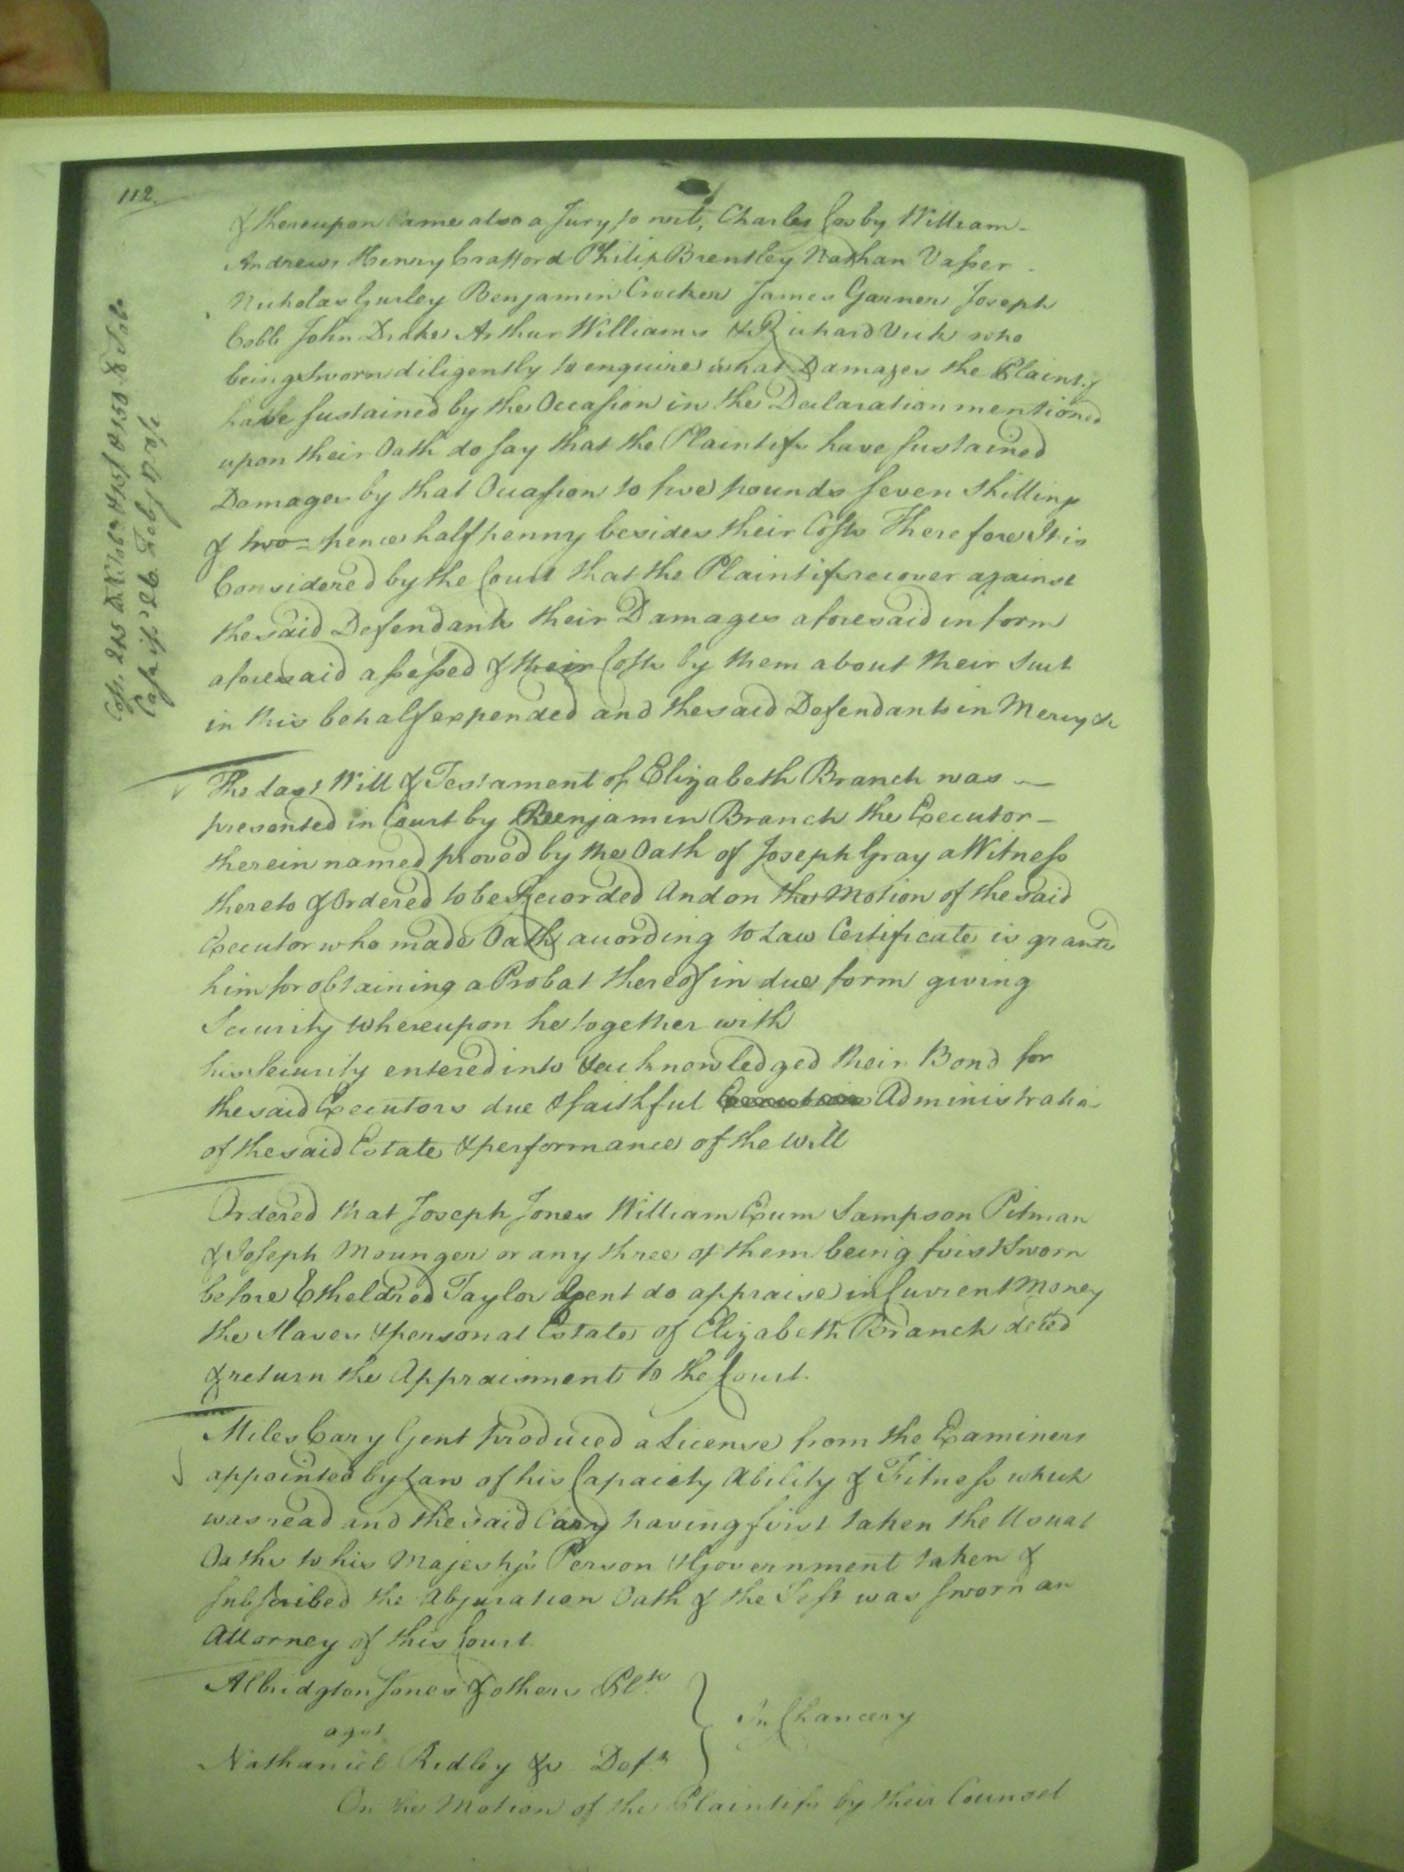 112.
& thereupon Came also a Jury to wit, Charles Cosby William
Andrews Henry Crafford Philip Brentley Nathan Vasser
Nicholas Gurley Benjamin Crocker James Garner Joseph
Cobb John Drake Arthur Williams & Richard Vick who
being Sworn diligently to enquire what Damages the Plaintifs
have sustained by the Occasion in the Declaration mentioned
upon their Oath do say that the Plaintifs have sustained
Damages by that Occasion to five pounds seven shillings
& two-pence halfpenny besides their Costs Therefore It is
Considered by the Court that the Plaintifs recover against
the said Defendants their Damages aforesaid in form
aforesaid assessed & their Costs by them about their suit
in this behalf expended and the said Defendants in Mercy &c
The last Will & Testament of Elizabeth Branch was
presented in Court by Benjamin Branch the Executor
therein named proved by the Oath of Joseph Gray a Witness
thereto & Ordered to be Recorded And on the Motion of the said
Executor who made Oath according to Law Certificate is grante
him for obtaining a Probat thereof in due form giving
Security Whereupon he together with
his Security entered into & acknowledged their Bond for
the said Executors due & faithful Administratio
of the said Estate & performance of the Will
Ordered that Joseph Jones William Exum Sampson Pitman
& Joseph Mounger or any three of them being first Sworn
before Etheldred Taylor Gent do appraise in Current Money
the Slaves & personal Estate of Elizabeth Branch deced
& return the Appraisment to the Court.
Miles Cary Gent produced a License from the Examiners
appointed by Law of his Capacity Ability & Fitness which
was read and the said Cary having first taken the Usual
Oaths to his Majesty's Person & Government taken &
subscribed the Abjuration Oath & the Test was sworn an
Attorney of this Court
Albridgton Jones & others Plts
agst
Nathaniel Ridley &c Defts
In Chancery
On the Motion of the Plaintifs by their Counsel